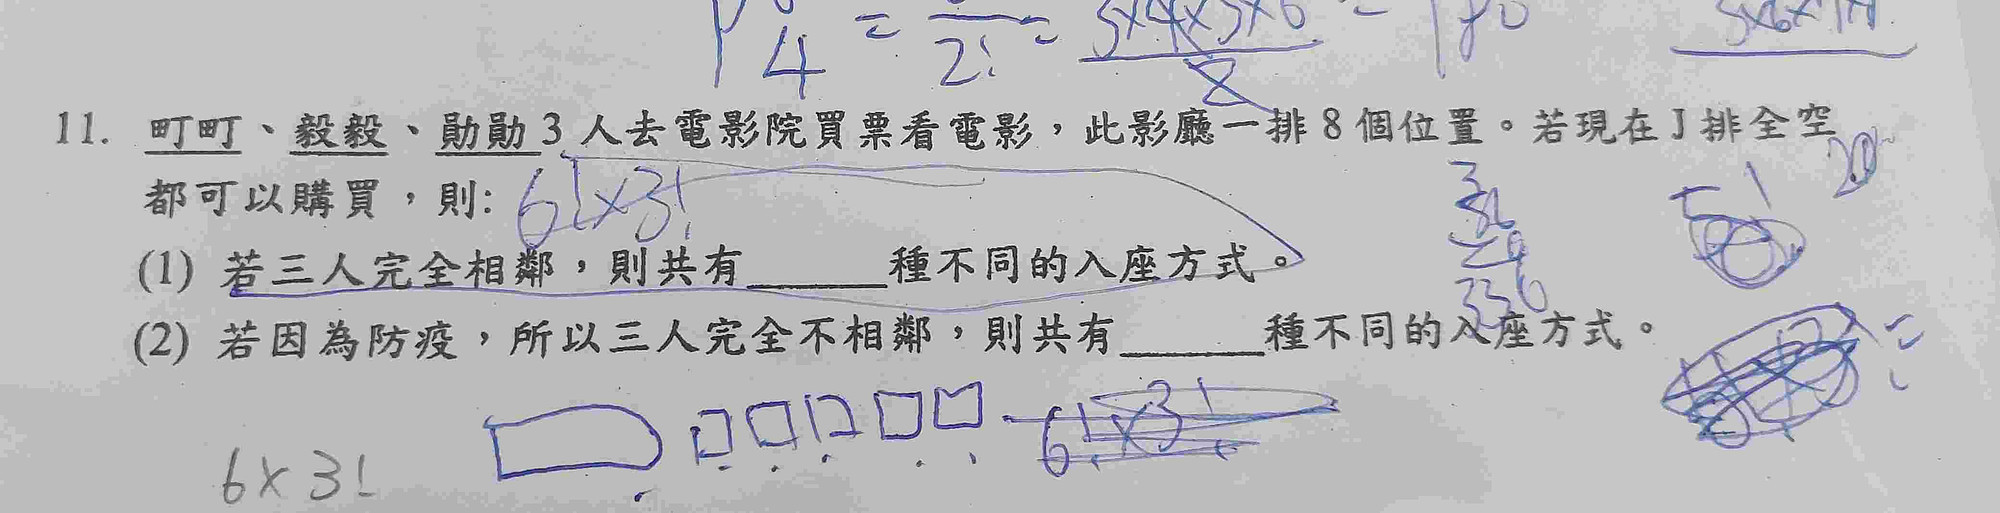 4 = 2! = 3×4×5×6 = 180
2
11. 町町、毅毅、勛勛3人去電影院買票看電影，此影廳一排8個位置。若現在J排全空
都可以購買，則:
6!×3!
(1) 若三人完全相鄰，則共有______種不同的入座方式。
336
(2) 若因為防疫，所以三人完全不相鄰，則共有______種不同的入座方式。
6!×3!
6×3!